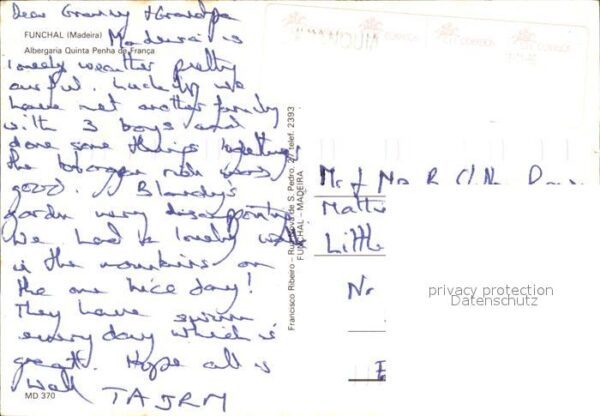 Dear Granny & Grandpa
FUNCHAL (Madeira)
Madeira is
Albergaria Quinta Penha de França
lovely weather pretty
awful. Luckily we
have met another family
with 3 boys and
done some things together
the toboggan ride was
good. Blandy's
garden very disappointing
We had a lovely walk
in the mountains on
the one nice day!
They have swum
every day which is
great. Hope all is
well TAJRM
MD 370
Francisco Ribeiro – Rua Nova de S. Pedro, 27 telef. 2393
FUNCHAL – MADEIRA
CTT CORREIOS
Mr & Mrs R
Little
privacy protection
Datenschutz